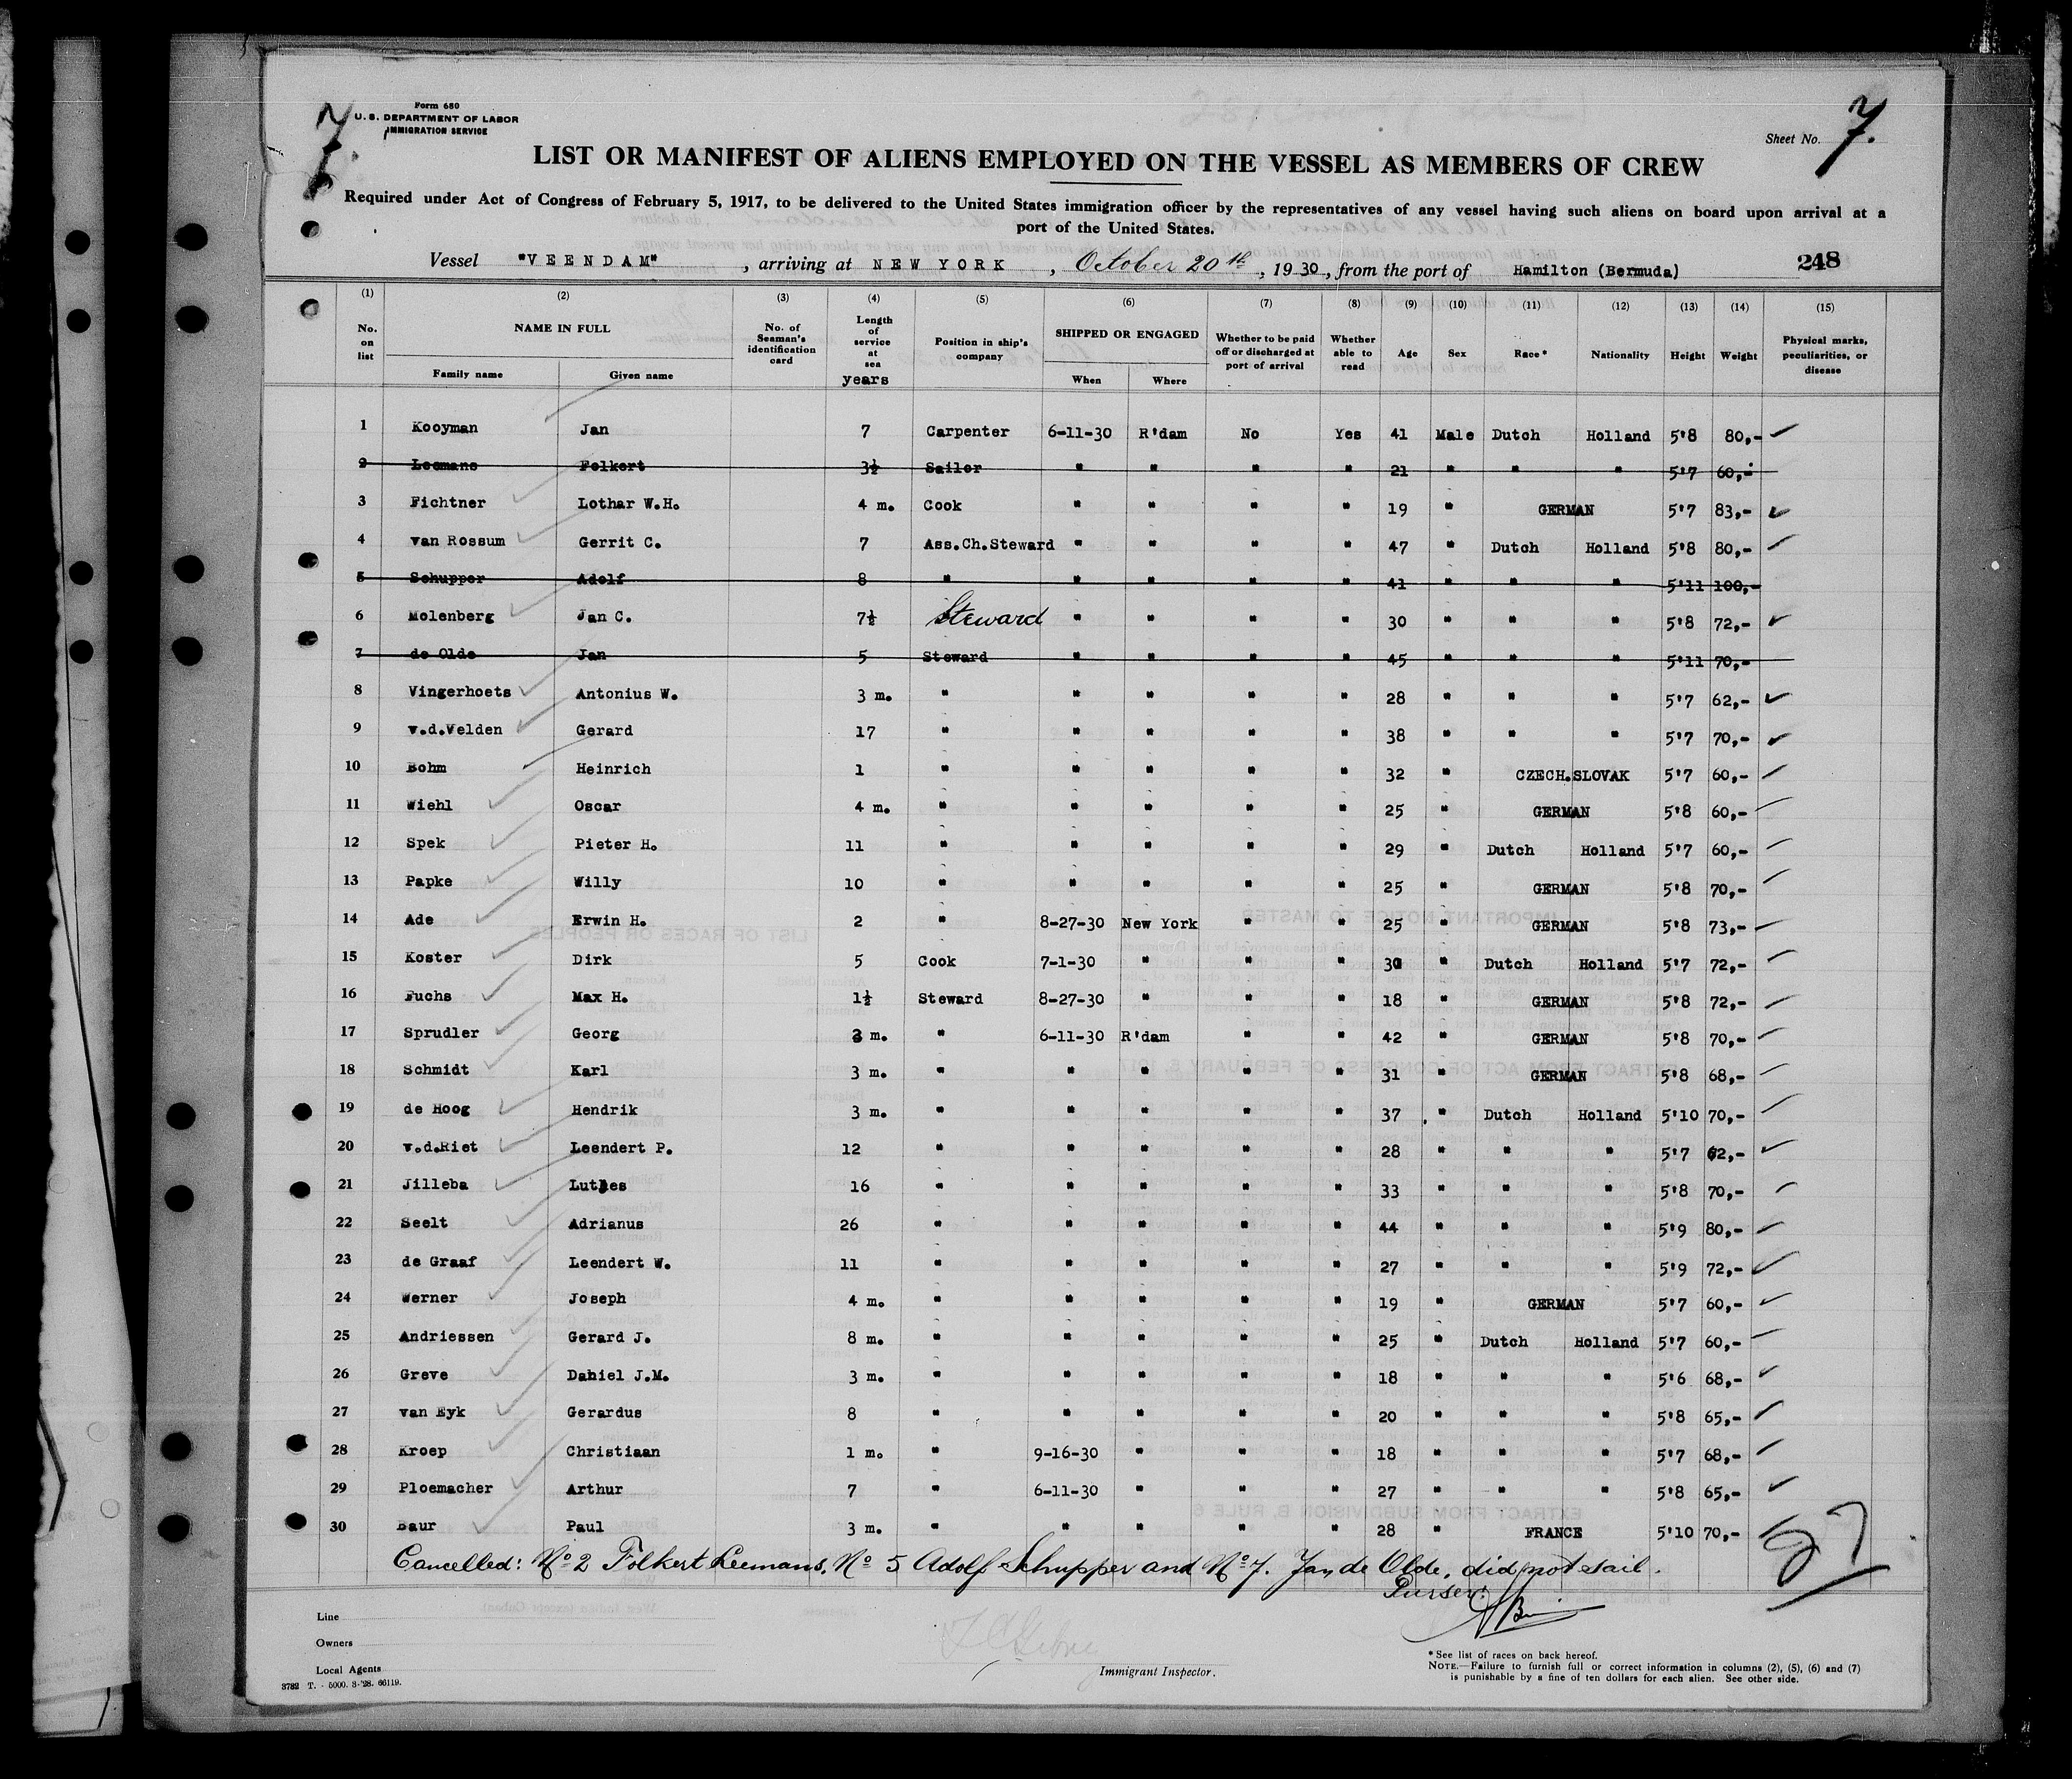 7
Form 680
U. S. DEPARTMENT OF LABOR
IMMIGRATION SERVICE
Sheet No. 7.
LIST OR MANIFEST OF ALIENS EMPLOYED ON THE VESSEL AS MEMBERS OF CREW
Required under Act of Congress of February 5, 1917, to be delivered to the United States immigration officer by the representatives of any vessel having such aliens on board upon arrival at a
port of the United States.
Vessel "VEENDAM", arriving at NEW YORK, October 20th, 1930, from the port of Hamilton (Bermuda) 248
(1) (2) (3) (4) (5) (6) (7) (8) (9) (10) (11) (12) (13) (14) (15)
No. on list NAME IN FULL Family name Given name No. of Seaman's identification card Length of service at sea years Position in ship's company SHIPPED OR ENGAGED When Where Whether to be paid off or discharged at port of arrival Whether able to read Age Sex Race* Nationality Height Weight Physical marks, peculiarities, or disease
1 Kooyman Jan 7 Carpenter 6-11-30 R'dam No Yes 41 Male Dutch Holland 5'8 80,-
2 Leemans Folkert 3½ Sailor " " " " 21 " " " 5'7 60,-
3 Fichtner Lothar W.H. 4 m. Cook " " " " 19 " GERMAN 5'7 83,-
4 van Rossum Gerrit C. 7 Ass.Ch.Steward " " " " 47 " Dutch Holland 5'8 80,-
5 Schupper Adolf 8 " " " " " 41 " " " 5'11 100,-
6 Molenberg Jan C. 7½ Steward " " " " 30 " " " 5'8 72,-
7 de Olde Jan 5 Steward " " " " 45 " " " 5'11 70,-
8 Vingerhoets Antonius W. 3 m. " " " " " 28 " " " 5'7 62,-
9 v.d.Velden Gerard 17 " " " " " 38 " " " 5'7 70,-
10 Bohm Heinrich 1 " " " " " 32 " CZECH.SLOVAK 5'7 60,-
11 Wiehl Oscar 4 m. " " " " " 25 " GERMAN 5'8 60,-
12 Spek Pieter H. 11 " " " " " 29 " Dutch Holland 5'7 60,-
13 Papke Willy 10 " " " " " 25 " GERMAN 5'8 70,-
14 Ade Erwin H. 2 " 8-27-30 New York " " 25 " GERMAN 5'8 73,-
15 Koster Dirk 5 Cook 7-1-30 " " " 30 " Dutch Holland 5'7 72,-
16 Fuchs Max H. 1½ Steward 8-27-30 " " " 18 " GERMAN 5'8 72,-
17 Sprudler Georg 3 m. " 6-11-30 R'dam " " 42 " GERMAN 5'8 70,-
18 Schmidt Karl 3 m. " " " " " 31 " GERMAN 5'8 68,-
19 de Hoog Hendrik 3 m. " " " " " 37 " Dutch Holland 5'10 70,-
20 v.d.Riet Leendert P. 12 " " " " " 28 " " " 5'7 62,-
21 Jilleba Lutjes 16 " " " " " 33 " " " 5'8 70,-
22 Seelt Adrianus 26 " " " " " 44 " " " 5'9 80,-
23 de Graaf Leendert W. 11 " " " " " 27 " " " 5'9 72,-
24 Werner Joseph 4 m. " " " " " 19 " GERMAN 5'7 60,-
25 Andriessen Gerard J. 8 m. " " " " " 25 " Dutch Holland 5'7 60,-
26 Greve Daniel J.M. 3 m. " " " " " 18 " " " 5'6 68,-
27 van Eyk Gerardus 8 " " " " " 20 " " " 5'8 65,-
28 Kroep Christiaan 1 m. " 9-16-30 " " " 18 " " " 5'7 68,-
29 Ploemacher Arthur 7 " 6-11-30 " " " 27 " " " 5'8 65,-
30 Baur Paul 3 m. " " " " " 28 " FRANCE 5'10 70,-
Cancelled: No 2 Folkert Leemans, No 5 Adolf Schupper and No 7. Jan de Olde, did not sail.
Purser:
27
Line
Owners
Local Agents
Immigrant Inspector.
3782 T. - 5000. 3-'28. 66119.
* See list of races on back hereof.
NOTE.—Failure to furnish full or correct information in columns (2), (5), (6) and (7)
is punishable by a fine of ten dollars for each alien. See other side.